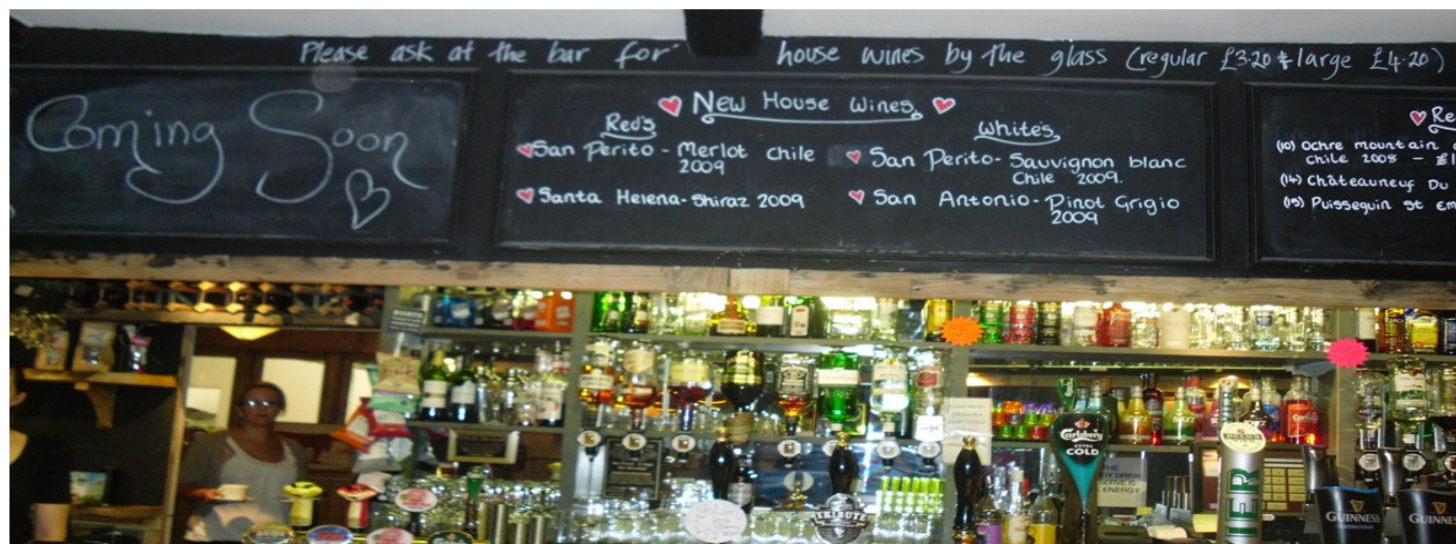 Please ask at the bar for house wines by the glass (regular £3.20 & large £4.20)
Coming Soon
New House Wines
Red's
San Perito - Merlot Chile
2009
Santa Helena - Shiraz 2009
White's
San Perito - Sauvignon blanc
Chile 2009.
San Antonio - Pinot Grigio
2009
Re
(10) Ochre mountain
Chile 2008 -
(14) Châteauneuf Du
(15) Puisseguin St Em
Carlsberg
EXTRA
COLD
THE
SERVE IS
ENERGY
TRIBUTE
GUINNESS
GUINNESS